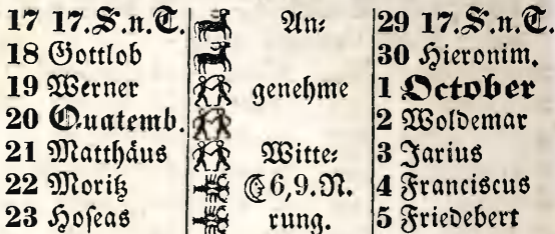 17 17.S.n.T. An⸗ 29 17.S.n.T.
18 Gottlob 30 Hieronim.
19 Werner genehme 1 October
20 Quatemb. 2 Woldemar
21 Matthäus Witte⸗ 3 Jarius
22 Moritz ☾6,9.N. 4 Franciscus
23 Hoseas rung. 5 Friedebert